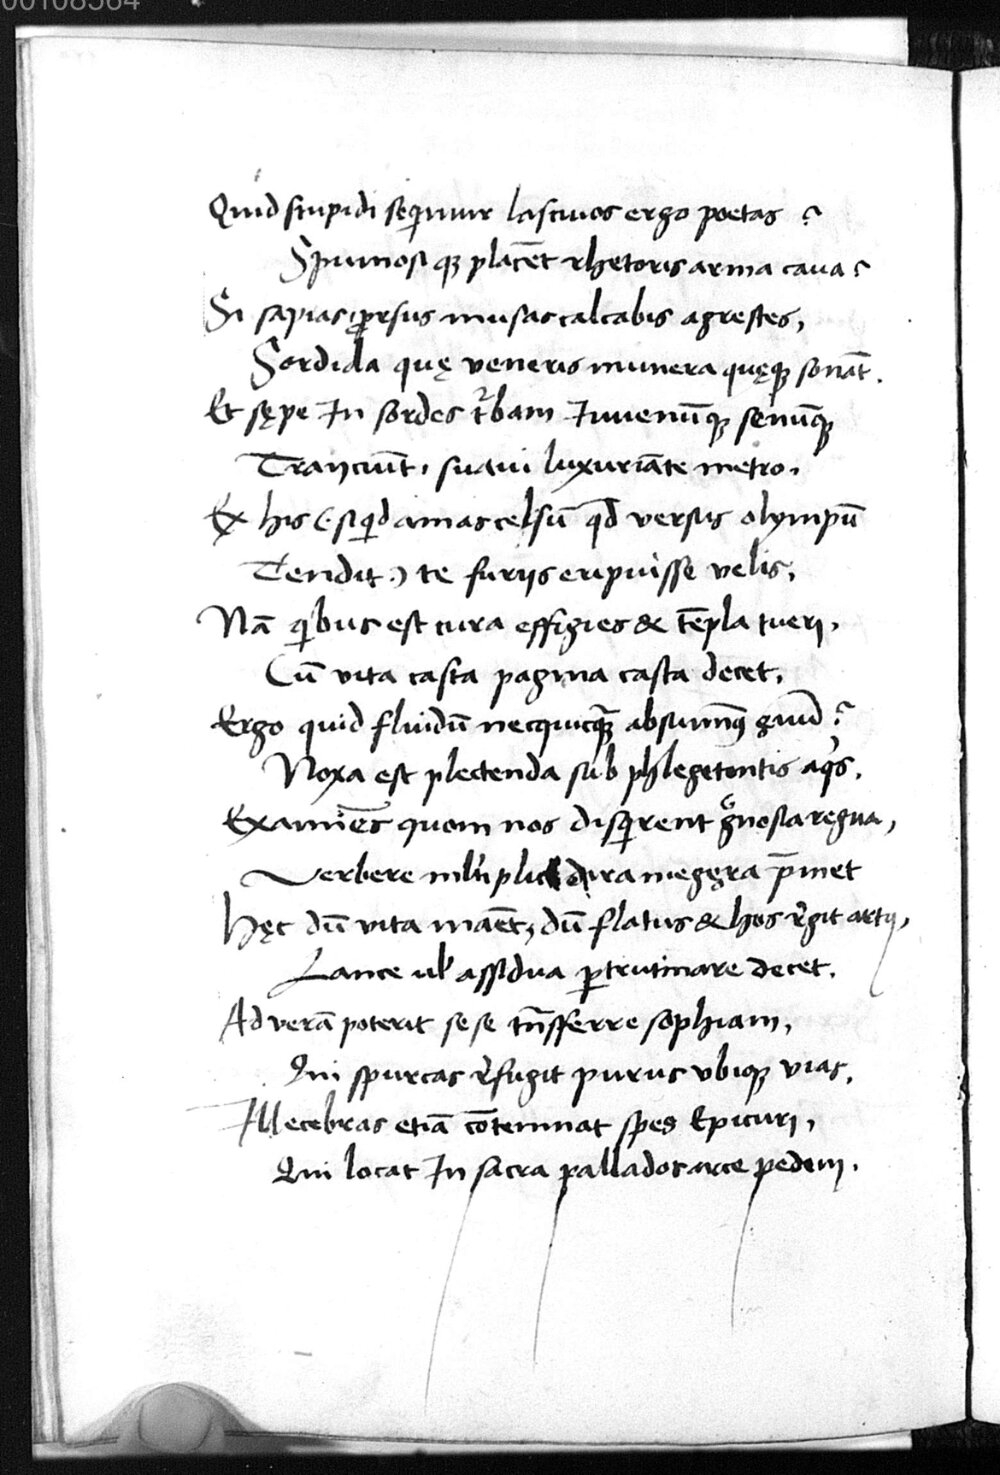 00108564
Quid stupidi seqimur lasciuos ergo poetas ?
Spumosi qꝫ placēt rhetoris arma caua ?
Si sapias, ꝓrsus musas calcabis agrestes,
Sordida quę veneris munera quęqꝫ sonāt.
Et sępe In sordes t̄bam Iuuenūqꝫ senūqꝫ
Traijciūt, suaui luxuriāte metro.
Ex his (siqd amas celsū qd versus olympū
Tendit) te furijs eripuisse velis,
Nā qibus est cura effigies & tēpla tueri,
Cū vita casta pagina casta decet,
Ergo quid fluidū necquicqꝫ absumimꝰ gaud ?
Noxa est plectenda sub phlegetontis aqs.
Examiēs quom nos disqrent gnosia regna,
Verbere mltiplici dira megęra p̄met
Hęc dū vita maēt, dū flatus & hos rgit artꝯ,
Lance ul assidua ꝑtrutinare decet.
Ad verā poterit sese tn̄sferre sophiam,
Qui spurcas rfugit purus vbiqꝫ vias,
Illecebras etiā cōtemnat spes Epicuri,
Qui locat In sacra pallados arce pedem.